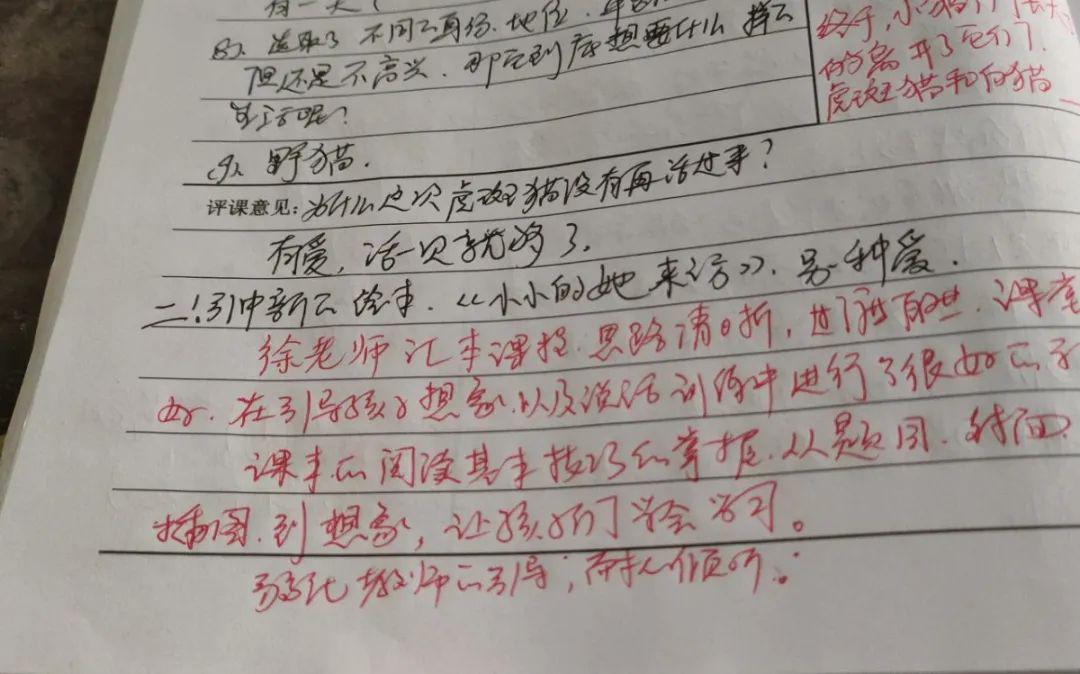 有一天(
8、选取了不同的身份、地位、
但还是不高兴.那它到底想要什么样的
生活呢?
9、野猫.
评课意见:为什么这次虎斑猫没有再活过来?
有爱,活一次就够了.
二、引申新的绘本.《小小的她来信》.另一种爱.
徐老师汇本课程.思路清晰,.课堂
好.在引导孩子想象.以及说话训练中进行了很好的
课本的阅读基本技巧的掌握.从题目.封面.
插图.到想象,让孩子们学会学习。
弱化教师的引导;耐心倾听.
终于,小猫们
的离开了它们了.
虎斑猫和白猫